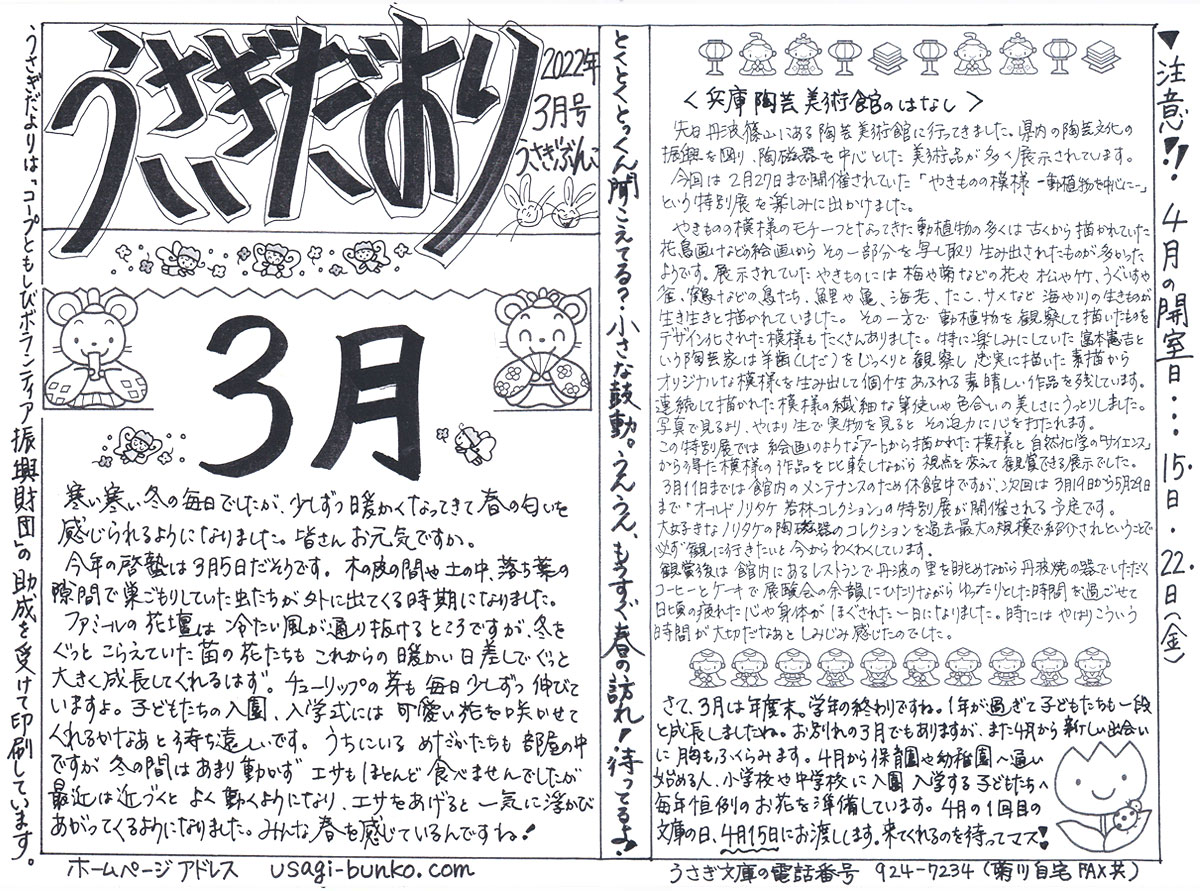 うさぎだより
2022年
3月号
うさぎぶんこ
3月
寒い寒い冬の毎日でしたが、少しずつ暖かくなってきて春の匂いを
感じられるようになりました。皆さんお元気ですか。
今年の啓蟄は3月5日だそうです。木の皮の間や土の中、落ち葉の
隙間で巣ごもりしていた虫たちが外に出てくる時期になりました。
ファミールの花壇は冷たい風が通り抜けるところですが、冬を
ぐっとこらえていた苗の花たちもこれからの暖かい日差しでぐっと
大きく成長してくれるはず。チューリップの芽も毎日少しずつ伸びて
いますよ。子どもたちの入園、入学式には可愛い花を咲かせて
くれるかなあと待ち遠しいです。うちにいるめだかたちも部屋の中
ですが冬の間はあまり動かずエサもほとんど食べませんでしたが
最近は近づくとよく動くようになり、エサをあげると一気に浮かび
あがってくるようになりました。みんな春を感じているんですね!
うさぎだよりは「コープともしびボランティア振興財団」の助成を受けて印刷しています。
ホームページアドレス usagi-bunko.com
とくとくとっくん聞こえてる?小さな鼓動。うんうん、もうすぐ春の訪れ!待ってるよ!
<兵庫陶芸美術館のはなし>
先日丹波篠山にある陶芸美術館に行ってきました。県内の陶芸文化の
振興を図り、陶磁器を中心とした美術品が多く展示されています。
今回は2月27日まで開催されていた「やきものの模様ー動植物を中心にー」
という特別展を楽しみに出かけました。
やきものの模様のモチーフとなってきた動植物の多くは古くから描かれていた
花鳥画などの絵画からその一部分を写し取り生み出されたものが多かった
ようです。展示されていたやきものには梅や菊などの花や松や竹、うぐいすや
雀、鶴などの鳥たち、鯉や亀、海老、たこ、サメなど海や川の生きものが
生き生きと描かれていました。その一方で動植物を観察して描いたものを
デザイン化された模様もたくさんありました。特に楽しみにしていた富本憲吉と
いう陶芸家は羊歯(しだ)をじっくりと観察し忠実に描いた素描から
オリジナルな模様を生み出して個性あふれる素晴しい作品を残しています。
連続して描かれた模様の繊細な筆使いや色合いの美しさにうっとりしました。
写真で見るより、やはり生で実物を見るとその迫力に心を打たれます。
この特別展では絵画のような「アート」から描かれた模様と自然化学の「サイエンス」
から得た模様の作品を比較しながら視点を変えて観賞できる展示でした。
3月11日までは館内のメンテナンスのため休館中ですが、次回は3月19日から5月29日
まで「オールドノリタケ若林コレクション」の特別展が開催される予定です。
大好きなノリタケの陶磁器のコレクションを過去最大の規模で紹介されということで
必ず観に行きたいと今からわくわくしています。
観賞後は館内にあるレストランで丹波の里を眺めながら丹波焼の器でいただく
コーヒーとケーキで展覧会の余韻にひたりながらゆったりとした時間を過ごせて
日頃の疲れた心や身体がほぐされた一日になりました。時にはやはりこういう
時間が大切だなあとしみじみ感じたのでした。
さて、3月は年度末。学年の終わりですね。1年が過ぎて子どもたちも一段
と成長しましたね。お別れの3月でもありますが、また4月から新しい出会い
に胸もふくらみます。4月から保育園や幼稚園へ通い
始める人、小学校や中学校に入園入学する子どもたちへ
毎年恒例のお花を準備しています。4月の1回目の
文庫の日、4月15日にお渡しします。来てくれるのを待ってマス!
うさぎ文庫の電話番号 924-7234(菊川自宅FAX共)
▼注意!!4月の開室日…15日・22日(金)